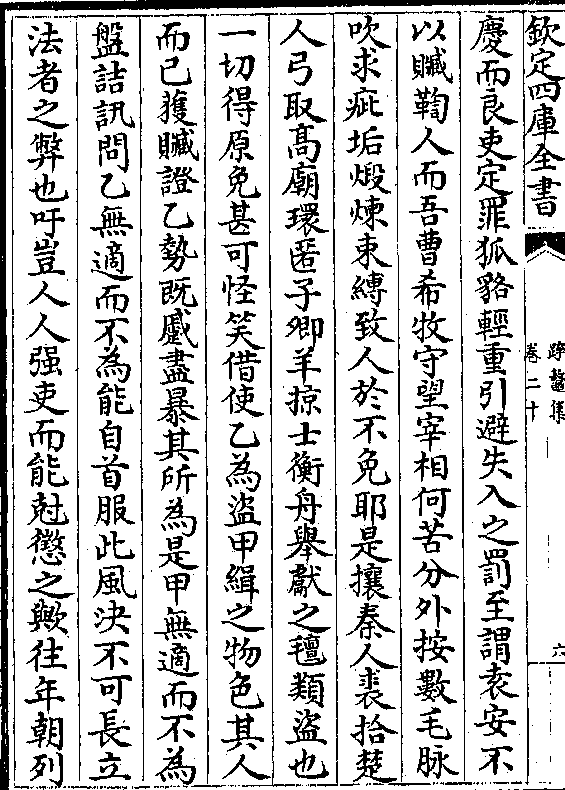 欽定四庫全書
跨鼇集
卷二十
六
慶而良吏定罪狐貉輕重引避失入之罰至謂袁安不
以贓鞫人而吾曹希牧守望宰相何苦分外按數毛脉
吹求疵垢煅煉束縛致人於不免耶是攘秦人裘拾楚
人弓取髙廟環匿子卿羊掠士衡舟舉獻之氊類盗也
一切得原免甚可怪笑借使乙為盗甲緝之物色其人
而已獲贓證乙勢既蹙盡暴其所為是甲無適而不為
盤詰訊問乙無適而不為能自首服此風決不可長立
法者之弊也吁豈人人强吏而能尅懲之歟往年朝列